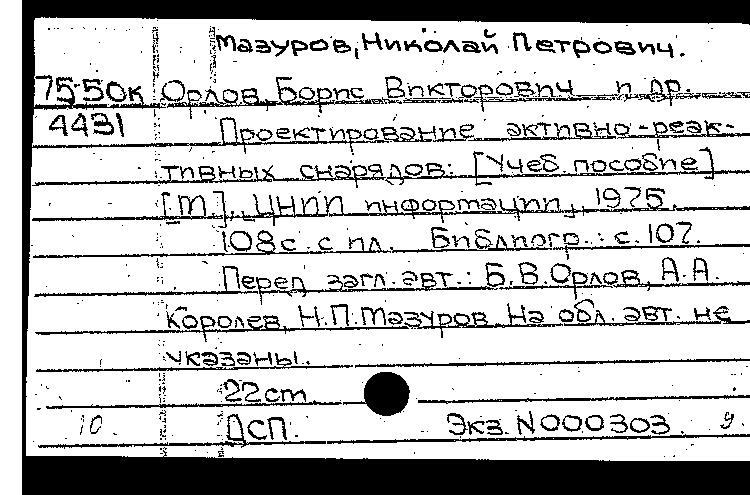 Мазуров, Николай Петрович.
75-50к Орлов, Борис Викторович и др.
4431 Проектирование активно-реак-
тивных снарядов: [Учеб. пособие]
[М.], ЦНИИ информации, 1975.
108с. с ил. Библиогр.: с. 107.
Перед загл. авт.: Б.В.Орлов, А.А.
Королев, Н.П.Мазуров. На обл. авт. не
указаны.
22см.
10 ДСП. Экз. N000303. 9.